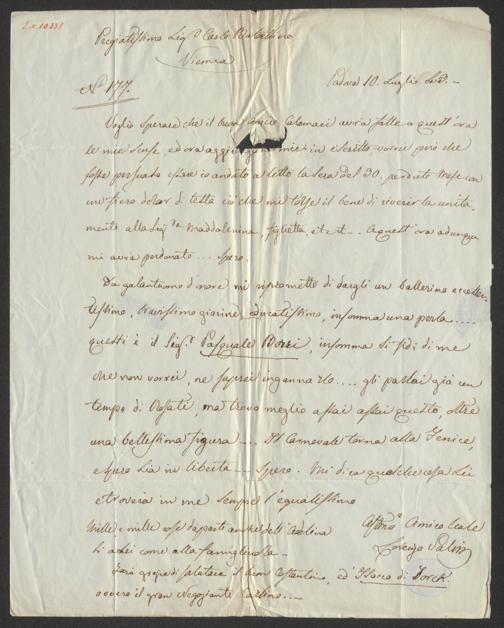 Pregiatissimo Sig.r Carlo Balochino
Vienna
N.o 177.
Padova 10. Luglio
Voglio sperare che il buon amico Calamari avrà fatte a quest'ora
le mie scuse, ed ora aggiungo mie in iscritto vorrei però che
fosse persuaso essere io andato a letto la sera del 20,
un fiero dolor di testa ciò che mi tolse il bene di riverirla unita
mente alla Sig.ra Maddalenina, figlietta, et et A quest'ora adunque
mi avrà perdonato ... spero.
Da galantuomo d'onore mi riprometto di dargli un ballerino eccellen
tissimo, bravissimo giovine, educatissimo, insomma una perla ....
questi è il Sig.r Pasquale Borri, insomma si fidi di me
che non vorrei, ne saprei ingannarlo .... gli parlai già un
tempo di Rosati, ma trovo meglio assai assai questo, oltre
una bellissima figura ... Il Carnevale torna alla Fenice,
e spero sia in libertà ... spero. Mi dica qualche cosa Lei
e troverà in me sempre l'egualissimo
Mille e mille cose da parte anche dell'
Aff.mo Amico leale
si a Lei come alla famigliuola -
Lorenzo
Sarà grazia di salutare il buon Costantino, ed
ovvero il gran Negoziante